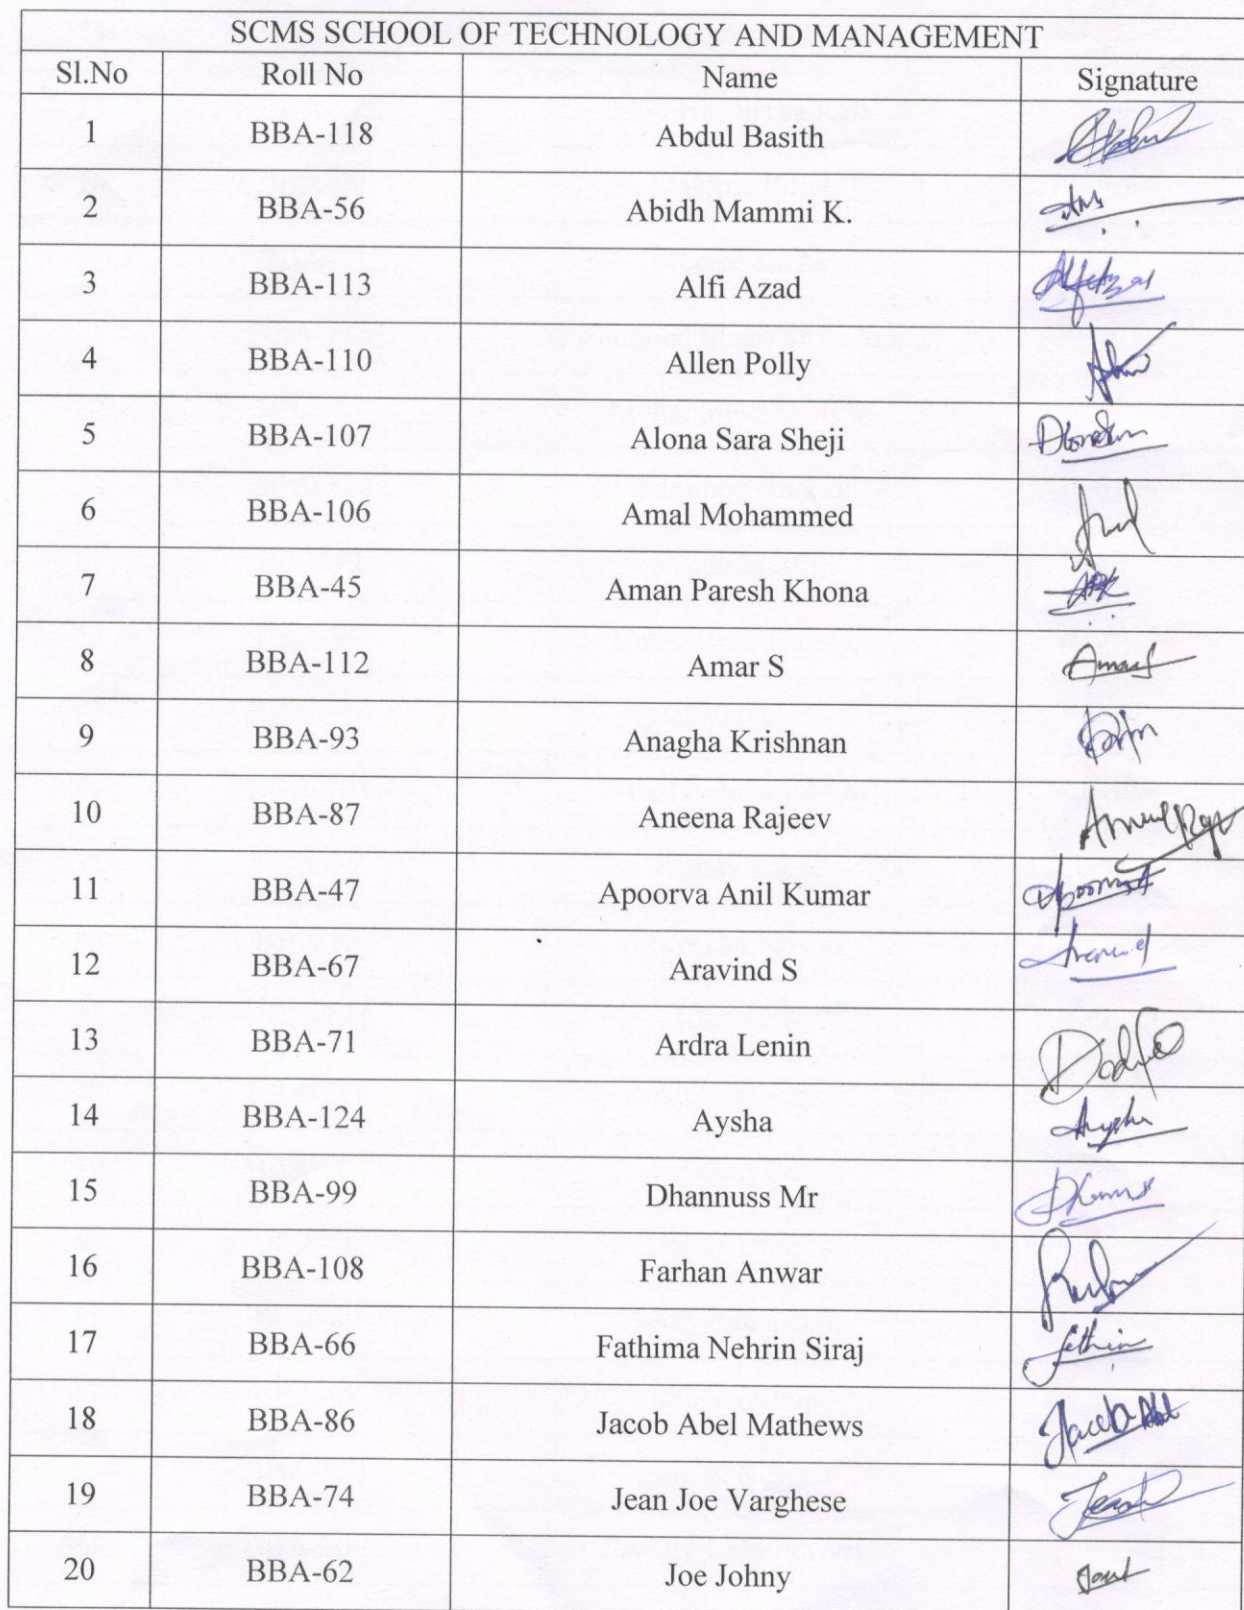 SCMS SCHOOL OF TECHNOLOGY AND MANAGEMENT
Sl.No Roll No Name Signature
1 BBA-118 Abdul Basith
2 BBA-56 Abidh Mammi K.
3 BBA-113 Alfi Azad
4 BBA-110 Allen Polly
5 BBA-107 Alona Sara Sheji
6 BBA-106 Amal Mohammed
7 BBA-45 Aman Paresh Khona
8 BBA-112 Amar S
9 BBA-93 Anagha Krishnan
10 BBA-87 Aneena Rajeev
11 BBA-47 Apoorva Anil Kumar
12 BBA-67 Aravind S
13 BBA-71 Ardra Lenin
14 BBA-124 Aysha
15 BBA-99 Dhannuss Mr
16 BBA-108 Farhan Anwar
17 BBA-66 Fathima Nehrin Siraj
18 BBA-86 Jacob Abel Mathews
19 BBA-74 Jean Joe Varghese
20 BBA-62 Joe Johny